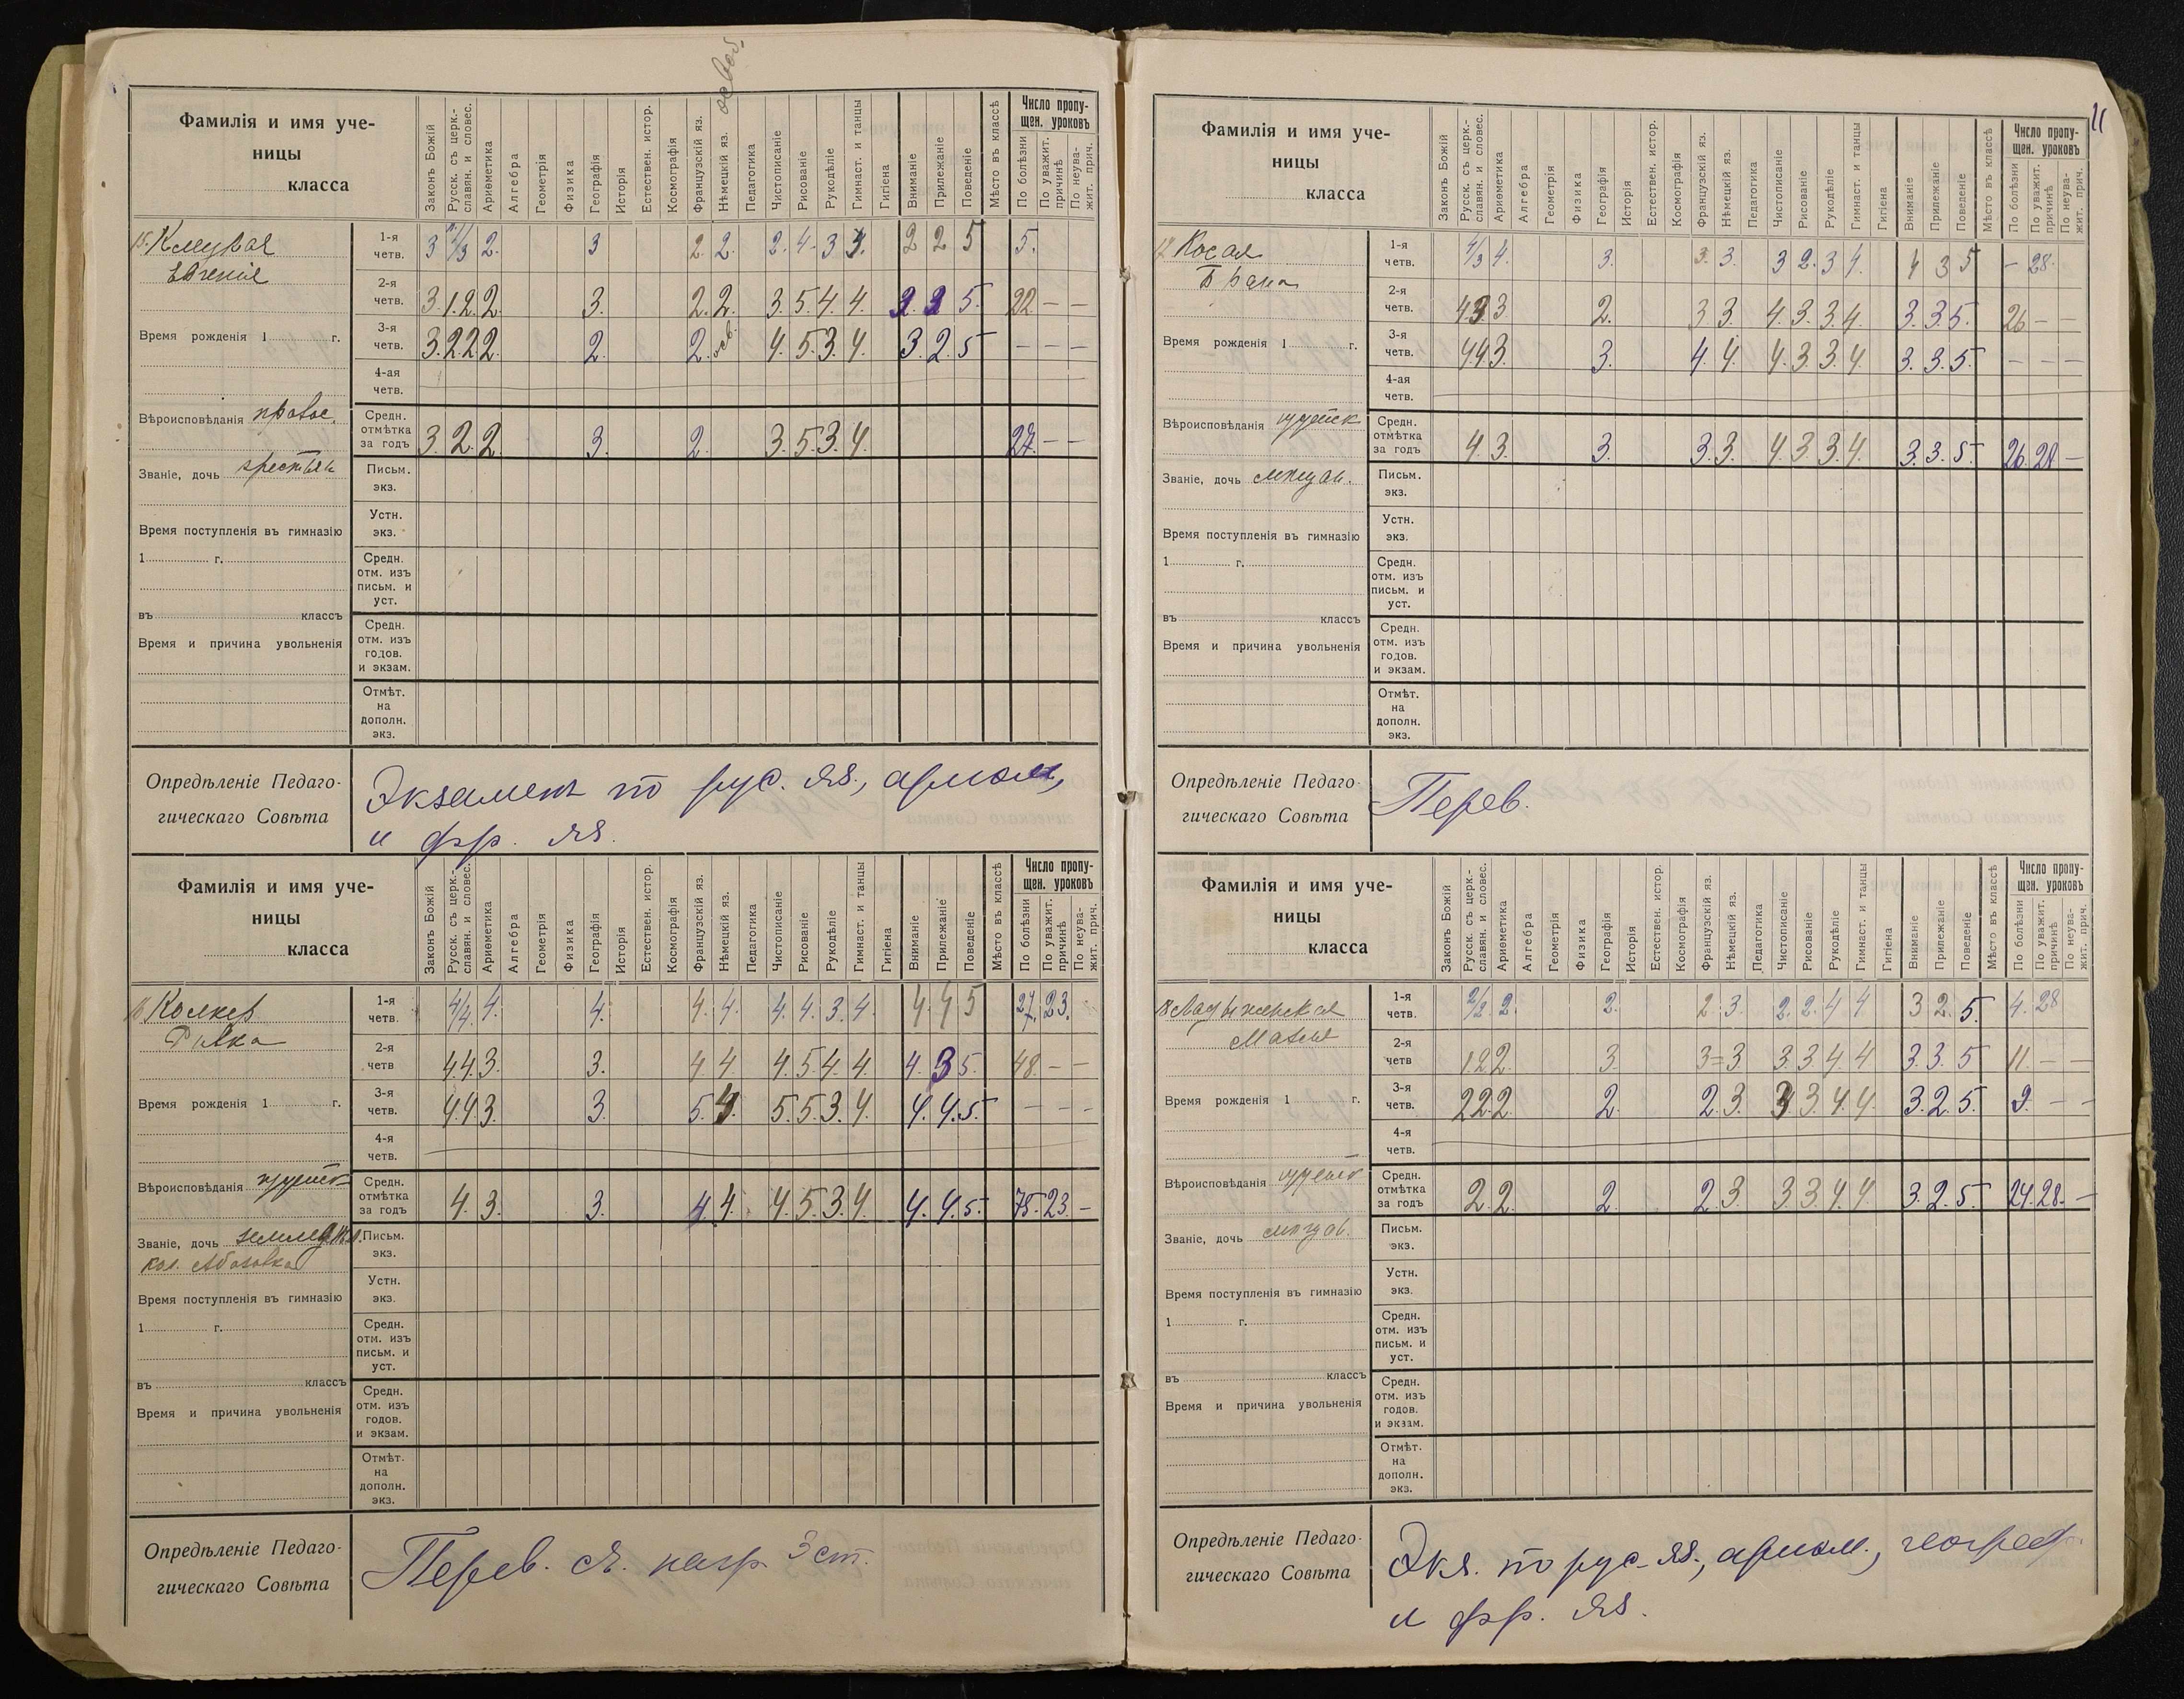 освоб.
Фамилія и имя уче-
ницы
класса
Законъ Божій
Русск. съ церк.-
славян. и словес.
Ариѳметика
Алгебра
Геометрія
Физика
Географія
Исторія
Естествен. истор.
Космографія
Французскій яз.
Нѣмецкій яз.
Педагогика
Чистописаніе
Рисованіе
Рукодѣліе
Гимнаст. и танцы
Гигіена
Вниманіе
Прилежаніе
Поведеніе
Мѣсто въ классѣ
Число пропу-
щен. уроковъ
По болѣзни
По уважит.
причинѣ
По неува-
жит. прич.
15.
Евгенія
1-я четв. 3 2/3 2. 3 2. 2. 2. 4. 3 3. 2 2 5 5.
2-я четв. 3. 1. 2. 2. 3. 2. 2. 3. 5. 4. 4. 5. 22. — —
Время рожденія 1 г.
3-я четв. 3. 2. 2. 2. 2. 2. осв. 4. 5. 3. 4. 3. 2. 5 — — —
4-ая четв.
Вѣроисповѣданія правос.
Средн. отмѣтка за годъ 3. 2. 2. 3. 2. 3. 5. 3. 4. 27. — —
Званіе, дочь крестьян
Письм. экз.
Время поступленія въ гимназію
1 г.
Устн. экз.
Средн. отм. изъ письм. и уст.
въ классъ
Время и причина увольненія
Средн. отм. изъ годов. и экзам.
Отмѣт. на дополн. экз.
Опредѣленіе Педаго-
гическаго Совѣта
Экзаменъ по рус. яз., ариѳм.,
и фр. яз.
Фамилія и имя уче-
ницы
класса
Законъ Божій
Русск. съ церк.-
славян. и словес.
Ариѳметика
Алгебра
Геометрія
Физика
Географія
Исторія
Естествен. истор.
Космографія
Французскій яз.
Нѣмецкій яз.
Педагогика
Чистописаніе
Рисованіе
Рукодѣліе
Гимнаст. и танцы
Гигіена
Вниманіе
Прилежаніе
Поведеніе
Мѣсто въ классѣ
Число пропу-
щен. уроковъ
По болѣзни
По уважит.
причинѣ
По неува-
жит. прич.
16
Ривка
1-я четв. 4/4. 4. 4. 4. 4. 4. 4. 3. 4. 4. 4 5 27. 23.
2-я четв 4. 4. 3. 3. 4 4 4. 5. 4. 4. 4. 3 5. 48. — —
Время рожденія 1 г.
3-я четв. 4. 4. 3. 3. 5. 4. 5. 5. 3. 4. 4. 4. 5 — — —
4-я четв.
Вѣроисповѣданія іудейск
Средн. отмѣтка за годъ 4. 3. 3. 4. 4. 4. 5. 3. 4. 4. 4. 5. 75. 23. —
Званіе, дочь землед.
кол. Абазовка
Письм. экз.
Время поступленія въ гимназію
1 г.
Устн. экз.
Средн. отм. изъ письм. и уст.
въ классъ
Время и причина увольненія
Средн. отм. изъ годов. и экзам.
Отмѣт. на дополн. экз.
Опредѣленіе Педаго-
гическаго Совѣта
Перев. съ нагр. 3 ст.
11
Фамилія и имя уче-
ницы
класса
Законъ Божій
Русск. съ церк.-
славян. и словес.
Ариѳметика
Алгебра
Геометрія
Физика
Географія
Исторія
Естествен. истор.
Космографія
Французскій яз.
Нѣмецкій яз.
Педагогика
Чистописаніе
Рисованіе
Рукодѣліе
Гимнаст. и танцы
Гигіена
Вниманіе
Прилежаніе
Поведеніе
Мѣсто въ классѣ
Число пропу-
щен. уроковъ
По болѣзни
По уважит.
причинѣ
По неува-
жит. прич.
Косая
Брана
1-я четв. 4/3 4. 3. 3. 3. 3 2. 3 4. 4 3 5 — 28.
2-я четв. 4. 3. 3 2. 3 3. 4. 3. 3. 4. 3. 3. 5. 26 — —
Время рожденія 1 г.
3-я четв. 4. 4. 3. 3. 4. 4. 4. 3 3 4. 3. 3. 5. — — —
4-ая четв.
Вѣроисповѣданія іудейск
Средн. отмѣтка за годъ 4 3. 3. 3. 3. 4. 3. 3. 4. 3. 3. 5. 26. 28. —
Званіе, дочь мѣщан.
Письм. экз.
Время поступленія въ гимназію
1 г.
Устн. экз.
Средн. отм. изъ письм. и уст.
въ классъ
Время и причина увольненія
Средн. отм. изъ годов. и экзам.
Отмѣт. на дополн. экз.
Опредѣленіе Педаго-
гическаго Совѣта
Перев.
Фамилія и имя уче-
ницы
класса
Законъ Божій
Русск. съ церк.-
славян. и словес.
Ариѳметика
Алгебра
Геометрія
Физика
Географія
Исторія
Естествен. истор.
Космографія
Французскій яз.
Нѣмецкій яз.
Педагогика
Чистописаніе
Рисованіе
Рукодѣліе
Гимнаст. и танцы
Гигіена
Вниманіе
Прилежаніе
Поведеніе
Мѣсто въ классѣ
Число пропу-
щен. уроковъ
По болѣзни
По уважит.
причинѣ
По неува-
жит. прич.
18 Ладыженская
1-я четв. 2/2. 2. 2. 2. 3. 2. 2. 4 4 3 2. 5. 4. 28
2-я четв 1. 2. 2. 3. 3= 3. 3. 3 4. 4 3. 3. 5 11. — —
Время рожденія 1 г.
3-я четв. 2. 2. 2. 2. 2. 3. 3 3. 4. 4. 3. 2. 5. 9. — —
4-я четв.
Вѣроисповѣданія іудейск
Средн. отмѣтка за годъ 2. 2. 2. 2. 3. 3. 3. 4. 4. 3. 2. 5. 24. 28. —
Званіе, дочь мѣщан.
Письм. экз.
Время поступленія въ гимназію
1 г.
Устн. экз.
Средн. отм. изъ письм. и уст.
въ классъ
Время и причина увольненія
Средн. отм. изъ годов. и экзам.
Отмѣт. на дополн. экз.
Опредѣленіе Педаго-
гическаго Совѣта
Экз. по рус. яз., ариѳм., географ.
и фр. яз.